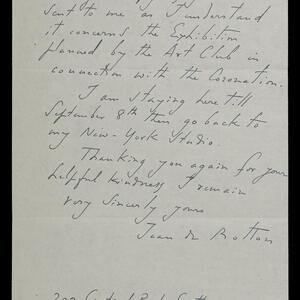 sent to me as I understand
it concerns the Exhibition
planned by the Art Club in
connection with the Coronation.
I am staying here till
September 8th then go back to
my New-York Studio.
Thanking you again for your
helpful kindness I remain
very sincerely yours
Jean de Botton
Central Park South